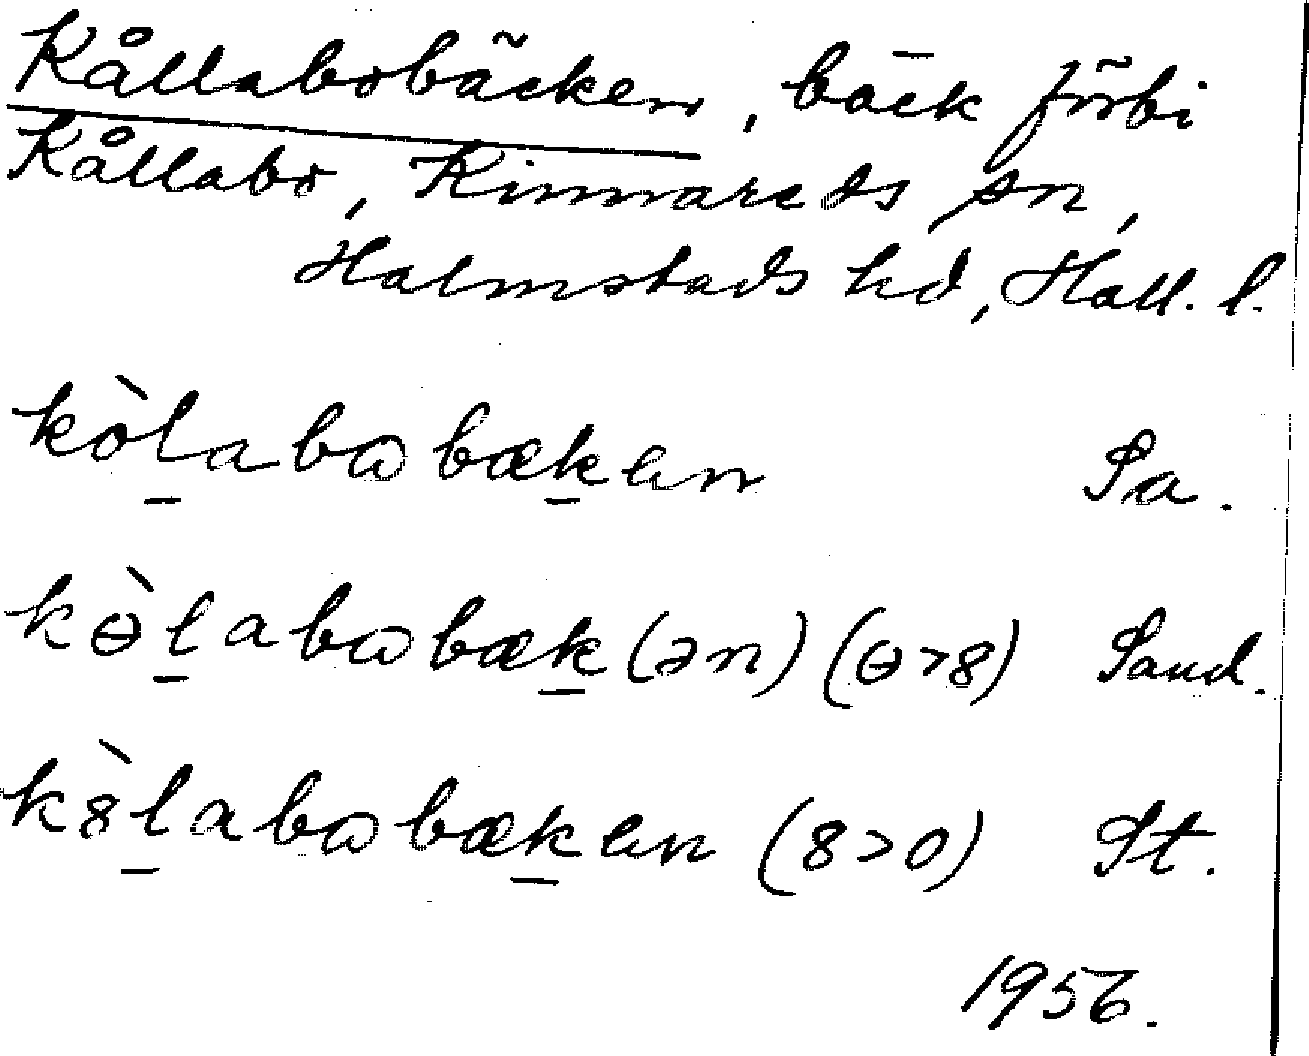 Kållabobäcken, bäck förbi
Kållabo, Kinnareds sn,
Halmstads hd, Hall. l.
kòl̠abɷbæk̠ən Sa.
kɵ̀l̠abɷbæk̠(ən) (ɵ>8) Sand.
k8̀l̠abɷbæk̠ən (8>o) St.
1956.